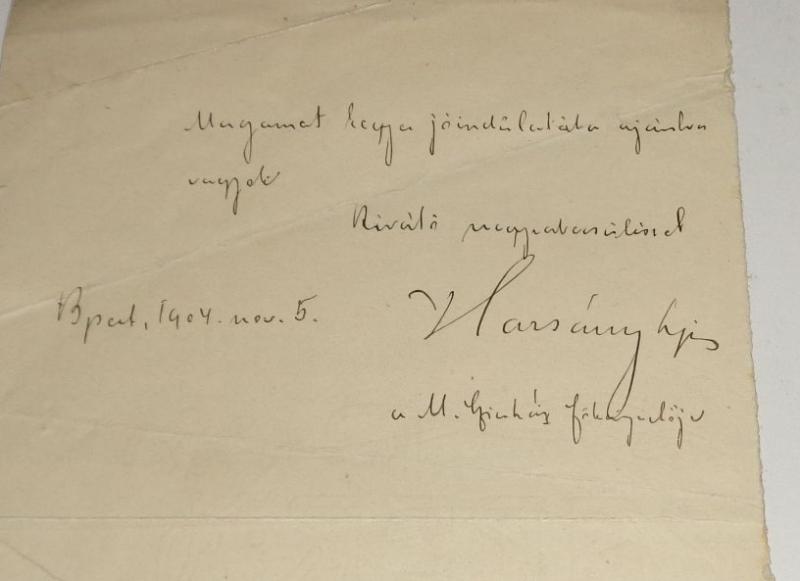 Magamat kegyes jóindulatába ajánlva
vagyok
Kiváló nagyrabecsüléssel
Bpest, 1904. nov. 5.
Harsányi
a M. Színház